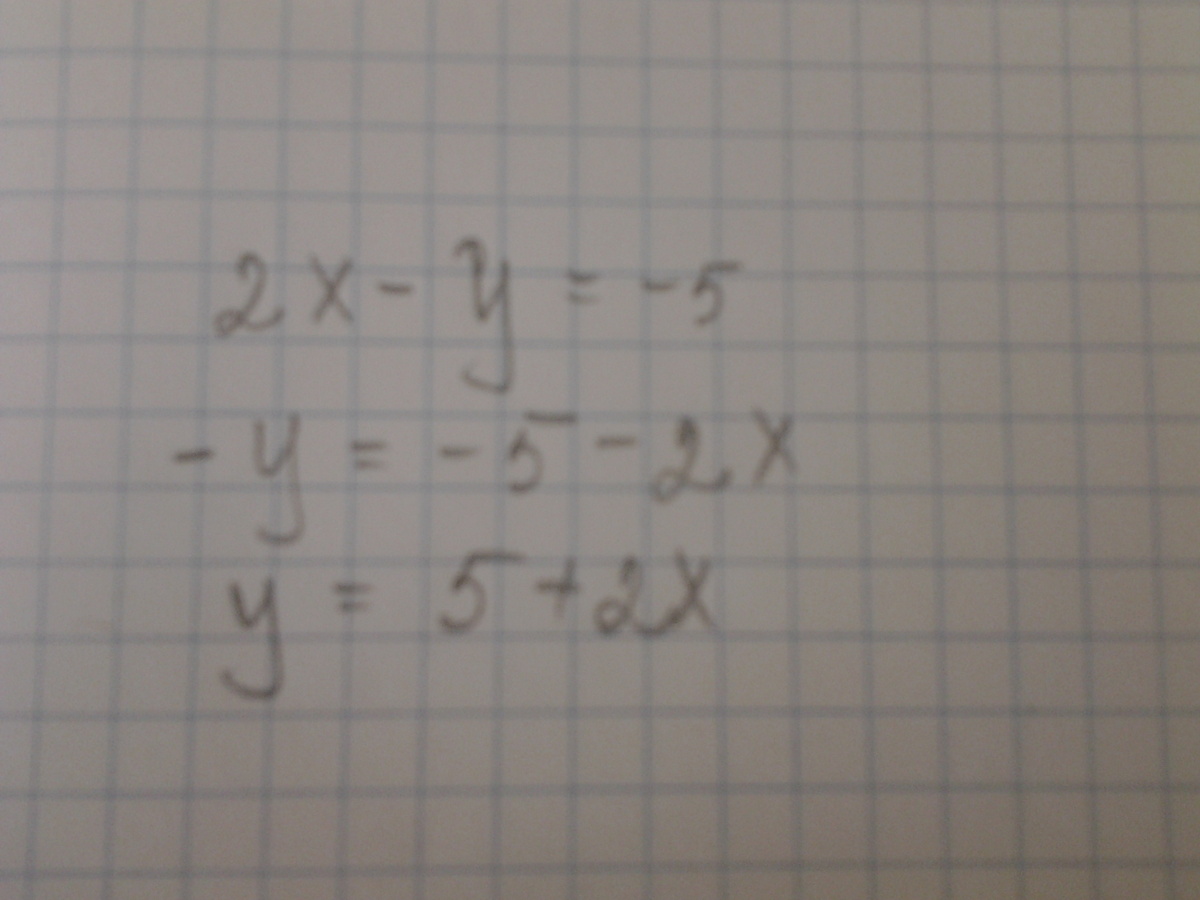 2x - y = -5
-y = -5 - 2x
y = 5 + 2x